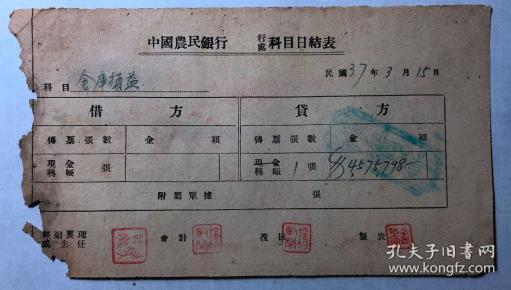 中國農民銀行 行處 科目日結表
民國37年3月15日
科目 倉庫損益
借方 貸方
傳票張數 金額 傳票張數 金額
現金轉帳 張 現金轉賬 1張 4,575,798-
附屬單據 張
會計 覆核 製表
孔夫子旧书网
www.kongfz.com